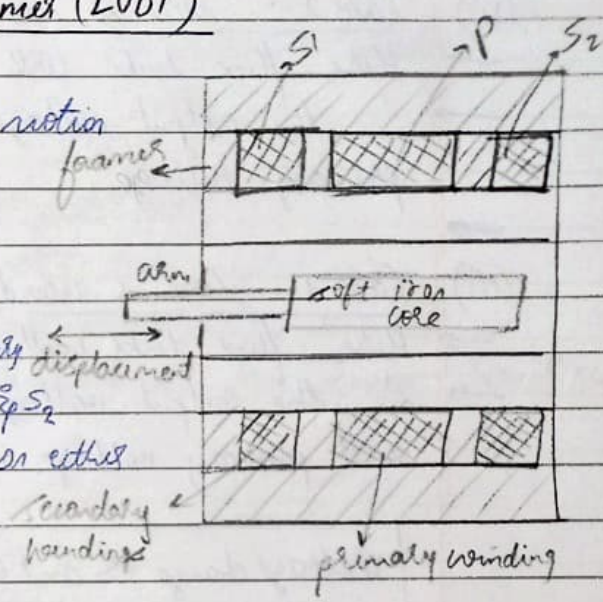 (LVDT)
S1 P S2
motion
former
arm
soft iron
core
displacement
& S2
on either
secondary
windings
primary winding